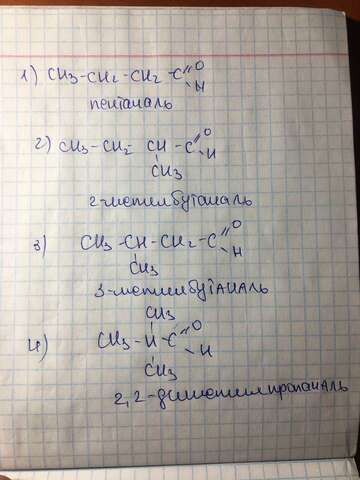 1) CH3-CH2-CH2-C=O
H
пентаналь
2) CH3-CH2-CH-C=O
H
CH3
2-метилбутаналь
3) CH3-CH-CH2-C=O
H
CH3
3-метилбутАНАЛЬ
CH3
4) CH3-H-C=O
H
CH3
2,2-диметилпропанАль